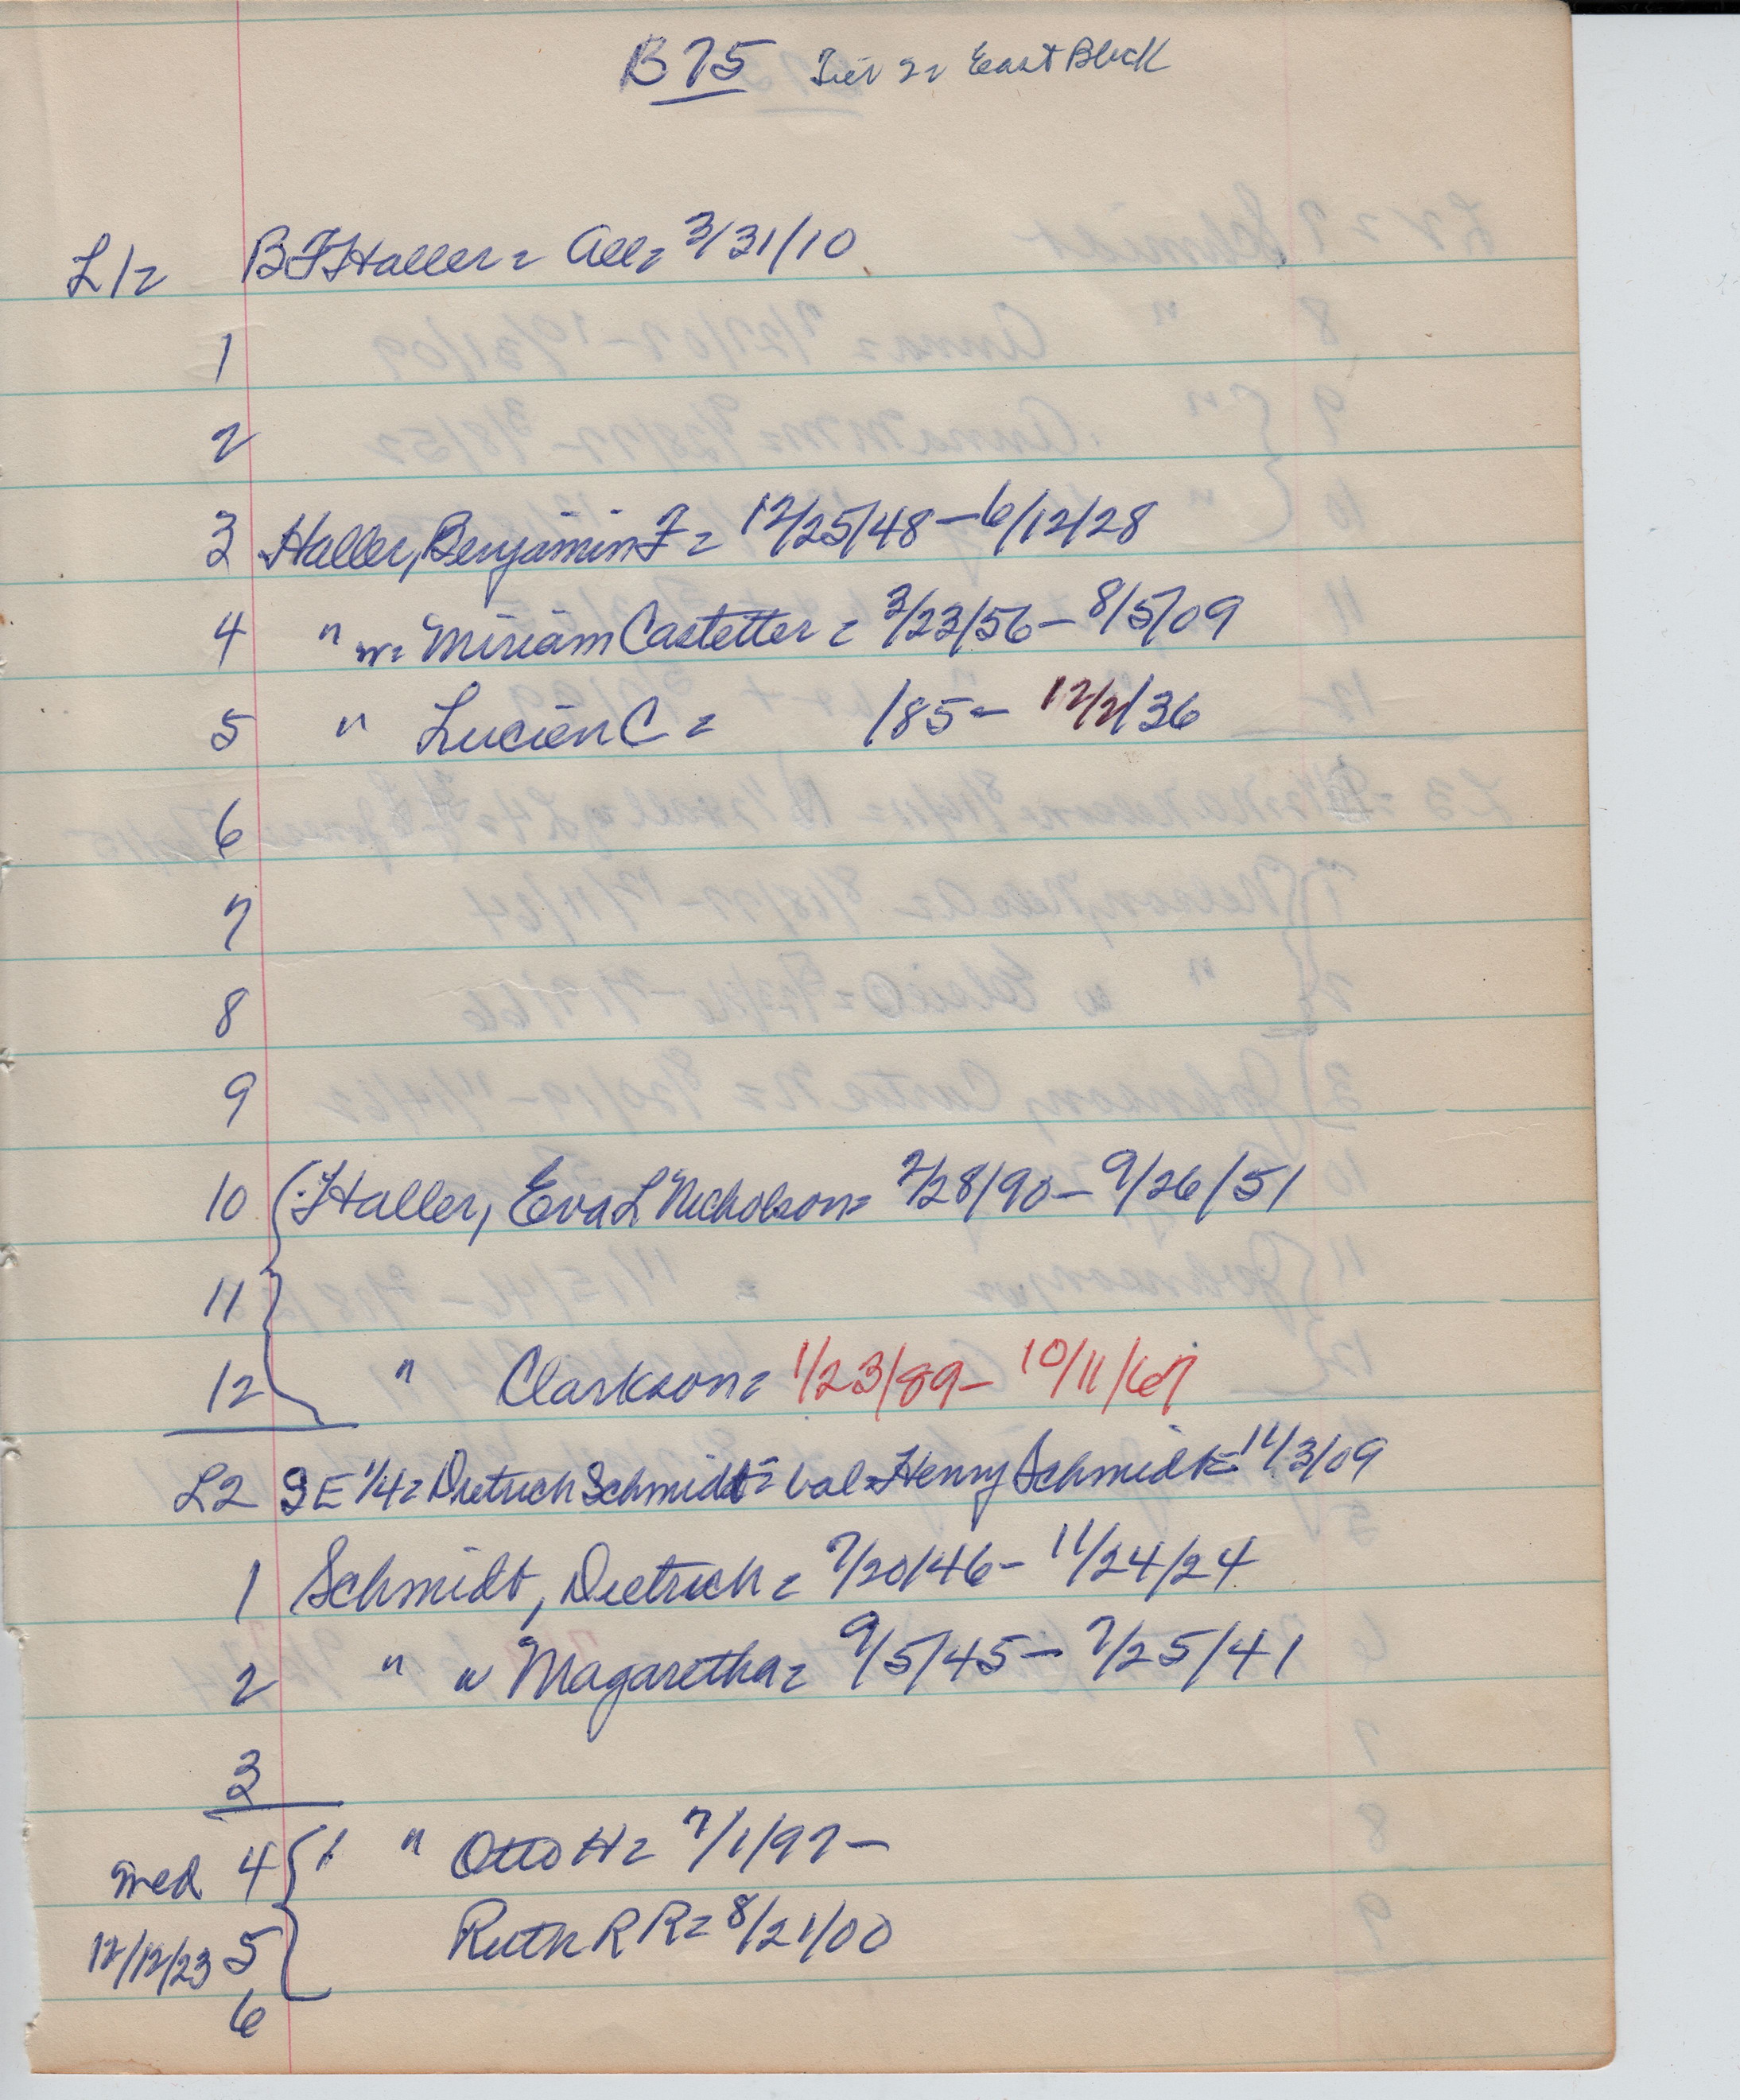 B75 Tier 2= East Block
L1= BFHaller= All= 3/31/10
1
2
3 Haller, Benjamin F= 12/25/48-6/12/28
4 " w= Miriam Castetter= 3/23/56-8/5/09
5 " Lucien C= /85- 12/2/36
6
7
8
9
10 Haller, Eva L Nicholson= 2/28/90-9/26/51
11
12 " Clarkson= 1/23/89-10/11/67
L2 SE 1/4= Dietrich Schmidt= bal=Henry Schmidt= 11/3/09
1 Schmidt, Dietrich= 7/20/46-11/24/24
2 " w Magaretha= 9/5/45-7/25/41
3
med 4 " Otto H= 7/1/97-
12/12/23 5 Ruth R R= 8/21/00
6